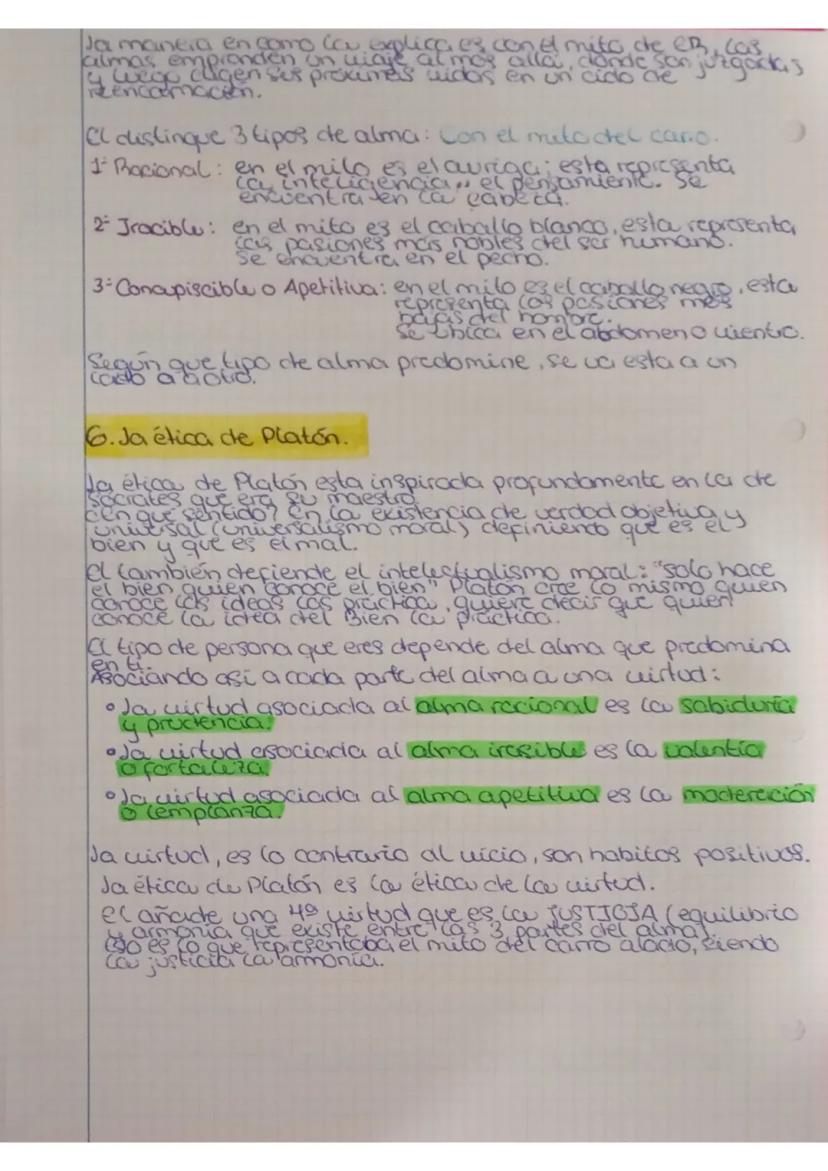 La manera en como la explica es con el mito de ER, las
almas emprenden un viaje al mas allá, donde son juzgadas
y luego eligen sus próximas vidas en un ciclo de
reencarnación.
El distingue 3 tipos de alma: Con el mito del carro.
1º Racional: en el mito es el auriga; esta representa
la inteligencia, el pensamiento. Se
encuentra en la cabeza.
2º Iracible: en el mito es el caballo blanco, esta representa
las pasiones mas nobles del ser humano.
Se encuentra en el pecho.
3º Concupiscible o Apetitiva: en el mito es el caballo negro, esta
representa las pasiones mas
bajas del hombre.
Se ubica en el abdomen o vientre.
Según que tipo de alma predomine, se va esta a un
lado a otro.
6. La ética de Platón.
La ética de Platón esta inspirada profundamente en la de
Sócrates que era su maestro.
¿en que sentido? En la existencia de verdad objetiva y
universal (universalismo moral) definiendo que es el
bien y que es el mal.
El también defiende el intelectualismo moral: "solo hace
el bien quien conoce el bien" Platón cree lo mismo quien
conoce las ideas las práctica, quiere decir que quien
conoce la idea del Bien la práctica.
El tipo de persona que eres depende del alma que predomina
en ti.
Asociando así a cada parte del alma a una virtud:
• La virtud asociada al alma racional es la sabiduría
y prudencia.
• La virtud asociada al alma irasible es la valentía
o fortaleza
• La virtud asociada al alma apetitiva es la moderación
o templanza.
La virtud, es lo contrario al vicio, son habitos positivos.
La ética de Platón es la ética de la virtud.
el añade una 4º virtud que es la JUSTICIA (equilibrio
y armonia que existe entre las 3 partes del alma)
Eso es lo que representaba el mito del carro alado, siendo
la justicia la armonía.